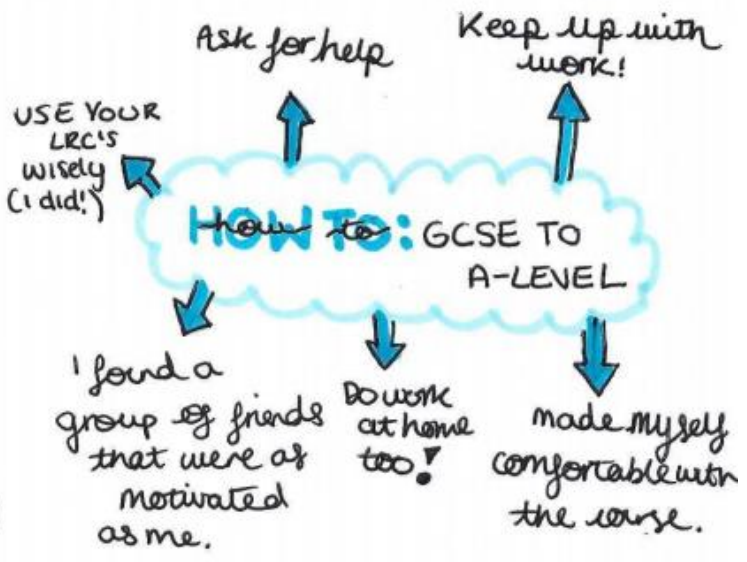 Ask for help
Keep up with
work!
USE YOUR
LRC'S
wisely
(i did!)
HOW TO: GCSE TO
how to
A-LEVEL
I found a
group of friends
that were as
motivated
as me.
Do work
at home
too!
made myself
comfortable with
the course.